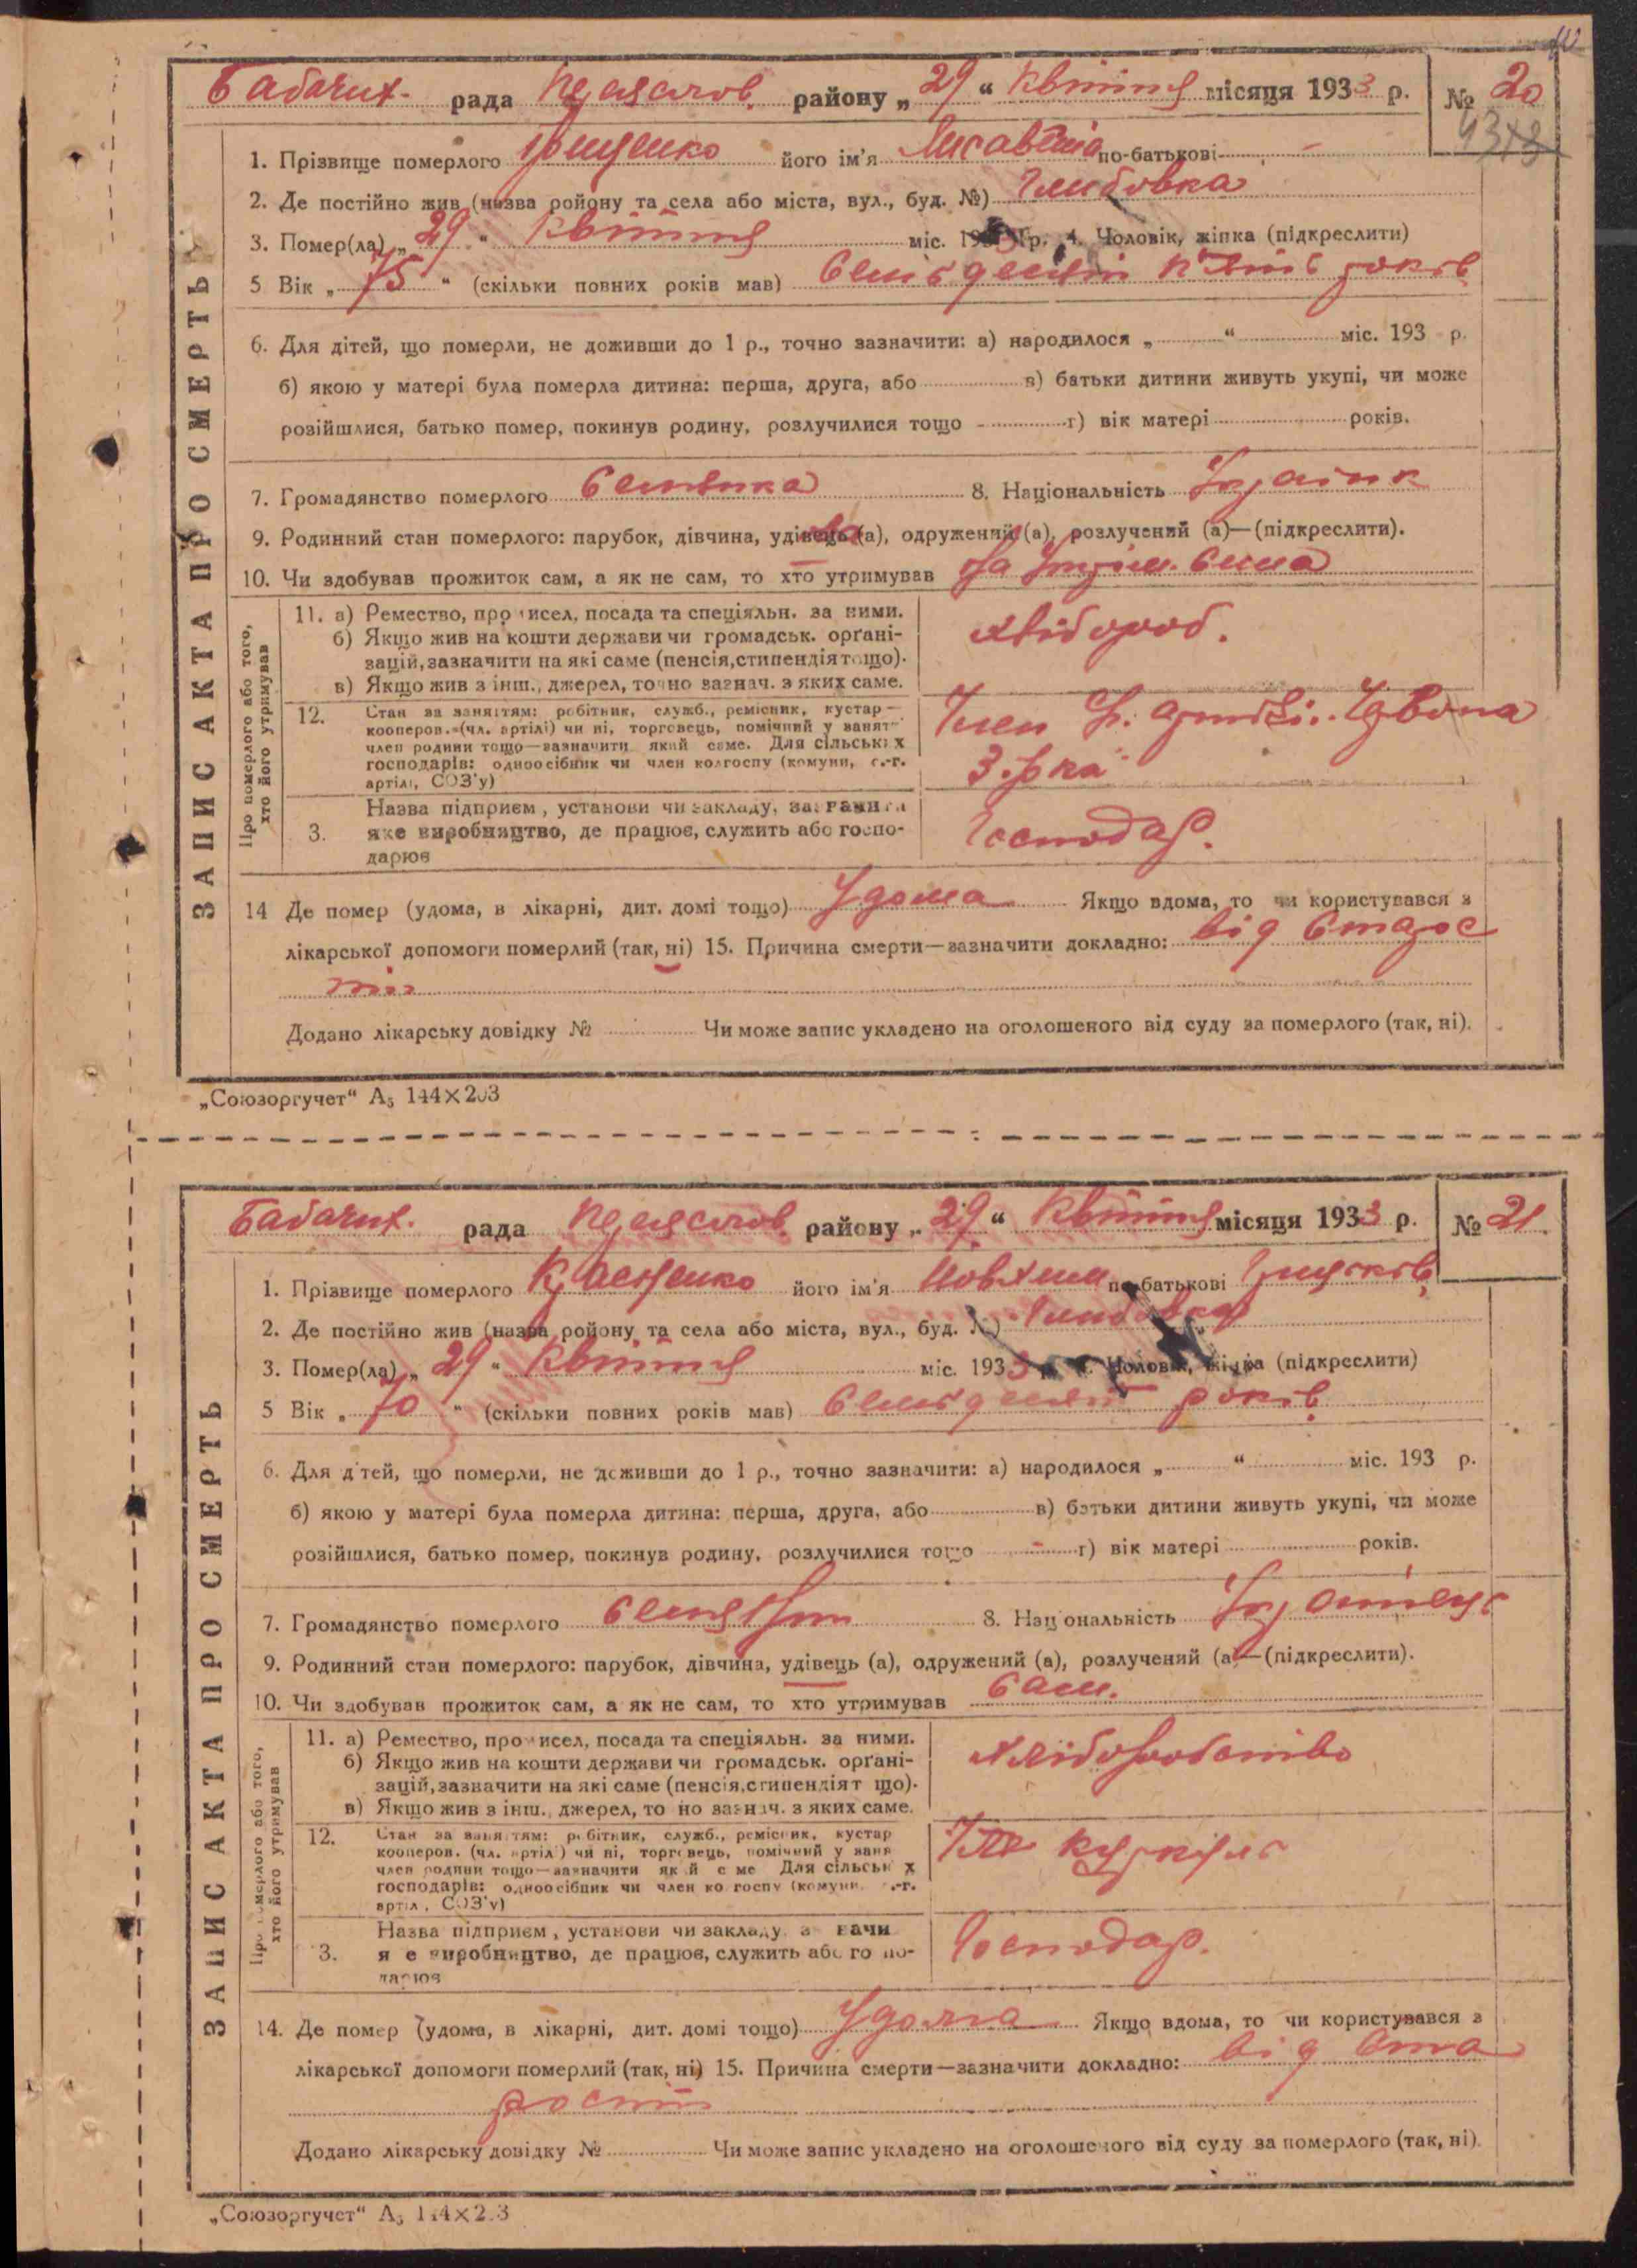 Бабачих. рада Переяслов. району „29“ Квітня місяця 1933 р. № 20
4378
1. Прізвище померлого його ім'я Лисавета по-батькові -
2. Де постійно жив (назва ройону та села або міста, вул., буд. №) Глибовка
3. Помер(ла) „29“ Квітня міс. 193 р. 4. Чоловік, жінка (підкреслити)
5 Вік „75“ (скільки повних років мав) Семідесят п'ять років
6. Для дітей, що померли, не доживши до 1 р., точно зазначити: а) народилося „ “ міс. 193 р.
б) якою у матері була померла дитина: перша, друга, або в) батьки дитини живуть укупі, чи може
розійшлися, батько помер, покинув родину, розлучилися тощо г) вік матері років.
7. Громадянство померлого Селянка 8. Національність Україн
9. Родинний стан померлого: парубок, дівчина, удівець (а), одружений (а), розлучений (а)—(підкреслити).
10. Чи здобував прожиток сам, а як не сам, то хто утримував На утрім. Сина
ЗАПИС АКТА ПРО СМЕРТЬ
Про померлого або того,
хто його утримував
11. а) Ремество, промисел, посада та спеціяльн. за ними.
б) Якщо жив на кошти держави чи громадськ. орґані-
зацій, зазначити на які саме (пенсія, стипендія тощо).
в) Якщо жив з інш., джерел, точно зазнач. з яких саме.
хлібороб.
12. Стан за заняттям: робітник, служб., ремісник, кустар-
кооперов. (чл. артілі) чи ні, торговець, помічний у занят-
член родини тощо—зазначити який саме. Для сільських
господарів: одноосібник чи член колгоспу (комуни, с.-г.
артілі, СОЗ'у)
Член Зірка
3. Назва підприєм, установи чи закладу, зазначити
яке виробництво, де працює, служить або госпо-
дарює
Господар.
14 Де помер (удома, в лікарні, дит. домі тощо) Удома Якщо вдома, то чи користувався з
лікарської допомоги померлий (так, ні) 15. Причина смерти—зазначити докладно: від старос
ти
Додано лікарську довідку № Чи може запис укладено на оголошеного від суду за померлого (так, ні).
„Союзоргучет“ А5 144×203
Бабачих. рада Переяслов. району „29“ Квітня місяця 1933 р. № 21
1. Прізвище померлого його ім'я Йовхим по-батькові
2. Де постійно жив (назва ройону та села або міста, вул., буд. №) Глибовка
3. Помер(ла) „29“ Квітня міс. 1933 р. 4. Чоловік, жінка (підкреслити)
5 Вік „70“ (скільки повних років мав) Семідесят років
6. Для дітей, що померли, не доживши до 1 р., точно зазначити: а) народилося „ “ міс. 193 р.
б) якою у матері була померла дитина: перша, друга, або в) батьки дитини живуть укупі, чи може
розійшлися, батько помер, покинув родину, розлучилися тощо г) вік матері років.
7. Громадянство померлого 8. Національність Українець
9. Родинний стан померлого: парубок, дівчина, удівець (а), одружений (а), розлучений (а)—(підкреслити).
10. Чи здобував прожиток сам, а як не сам, то хто утримував Сам.
ЗАПИС АКТА ПРО СМЕРТЬ
Про померлого або того,
хто його утримував
11. а) Ремество, промисел, посада та спеціяльн. за ними.
б) Якщо жив на кошти держави чи громадськ. орґані-
зацій, зазначити на які саме (пенсія, стипендія тощо).
в) Якщо жив з інш., джерел, точно зазнач. з яких саме.
хліборобство
12. Стан за заняттям: робітник, служб., ремісник, кустар
кооперов. (чл. артілі) чи ні, торговець, помічний у заня
член родини тощо—зазначити який саме Для сільських
господарів: одноосібник чи член колгоспу (комуни с.-г.
артілі, СОЗ'у)
куркуль
3. Назва підприєм, установи чи закладу, зазначи
яке виробництво, де працює, служить або госпо-
дарює
Господар.
14. Де помер (удома, в лікарні, дит. домі тощо) Удома Якщо вдома, то чи користувався з
лікарської допомоги померлий (так, ні) 15. Причина смерти—зазначити докладно: від ста
рости
Додано лікарську довідку № Чи може запис укладено на оголошеного від суду за померлого (так, ні).
„Союзоргучет“ А5 144×203